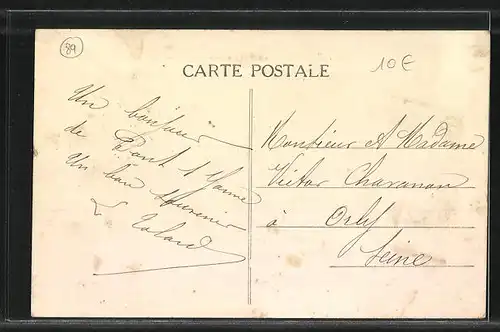 89
10€
CARTE POSTALE
Un bonjour
de Pont s/ Yonne
Un bon souvenir
Monsieur et Madame
Victor Charanon
à Orly
Seine